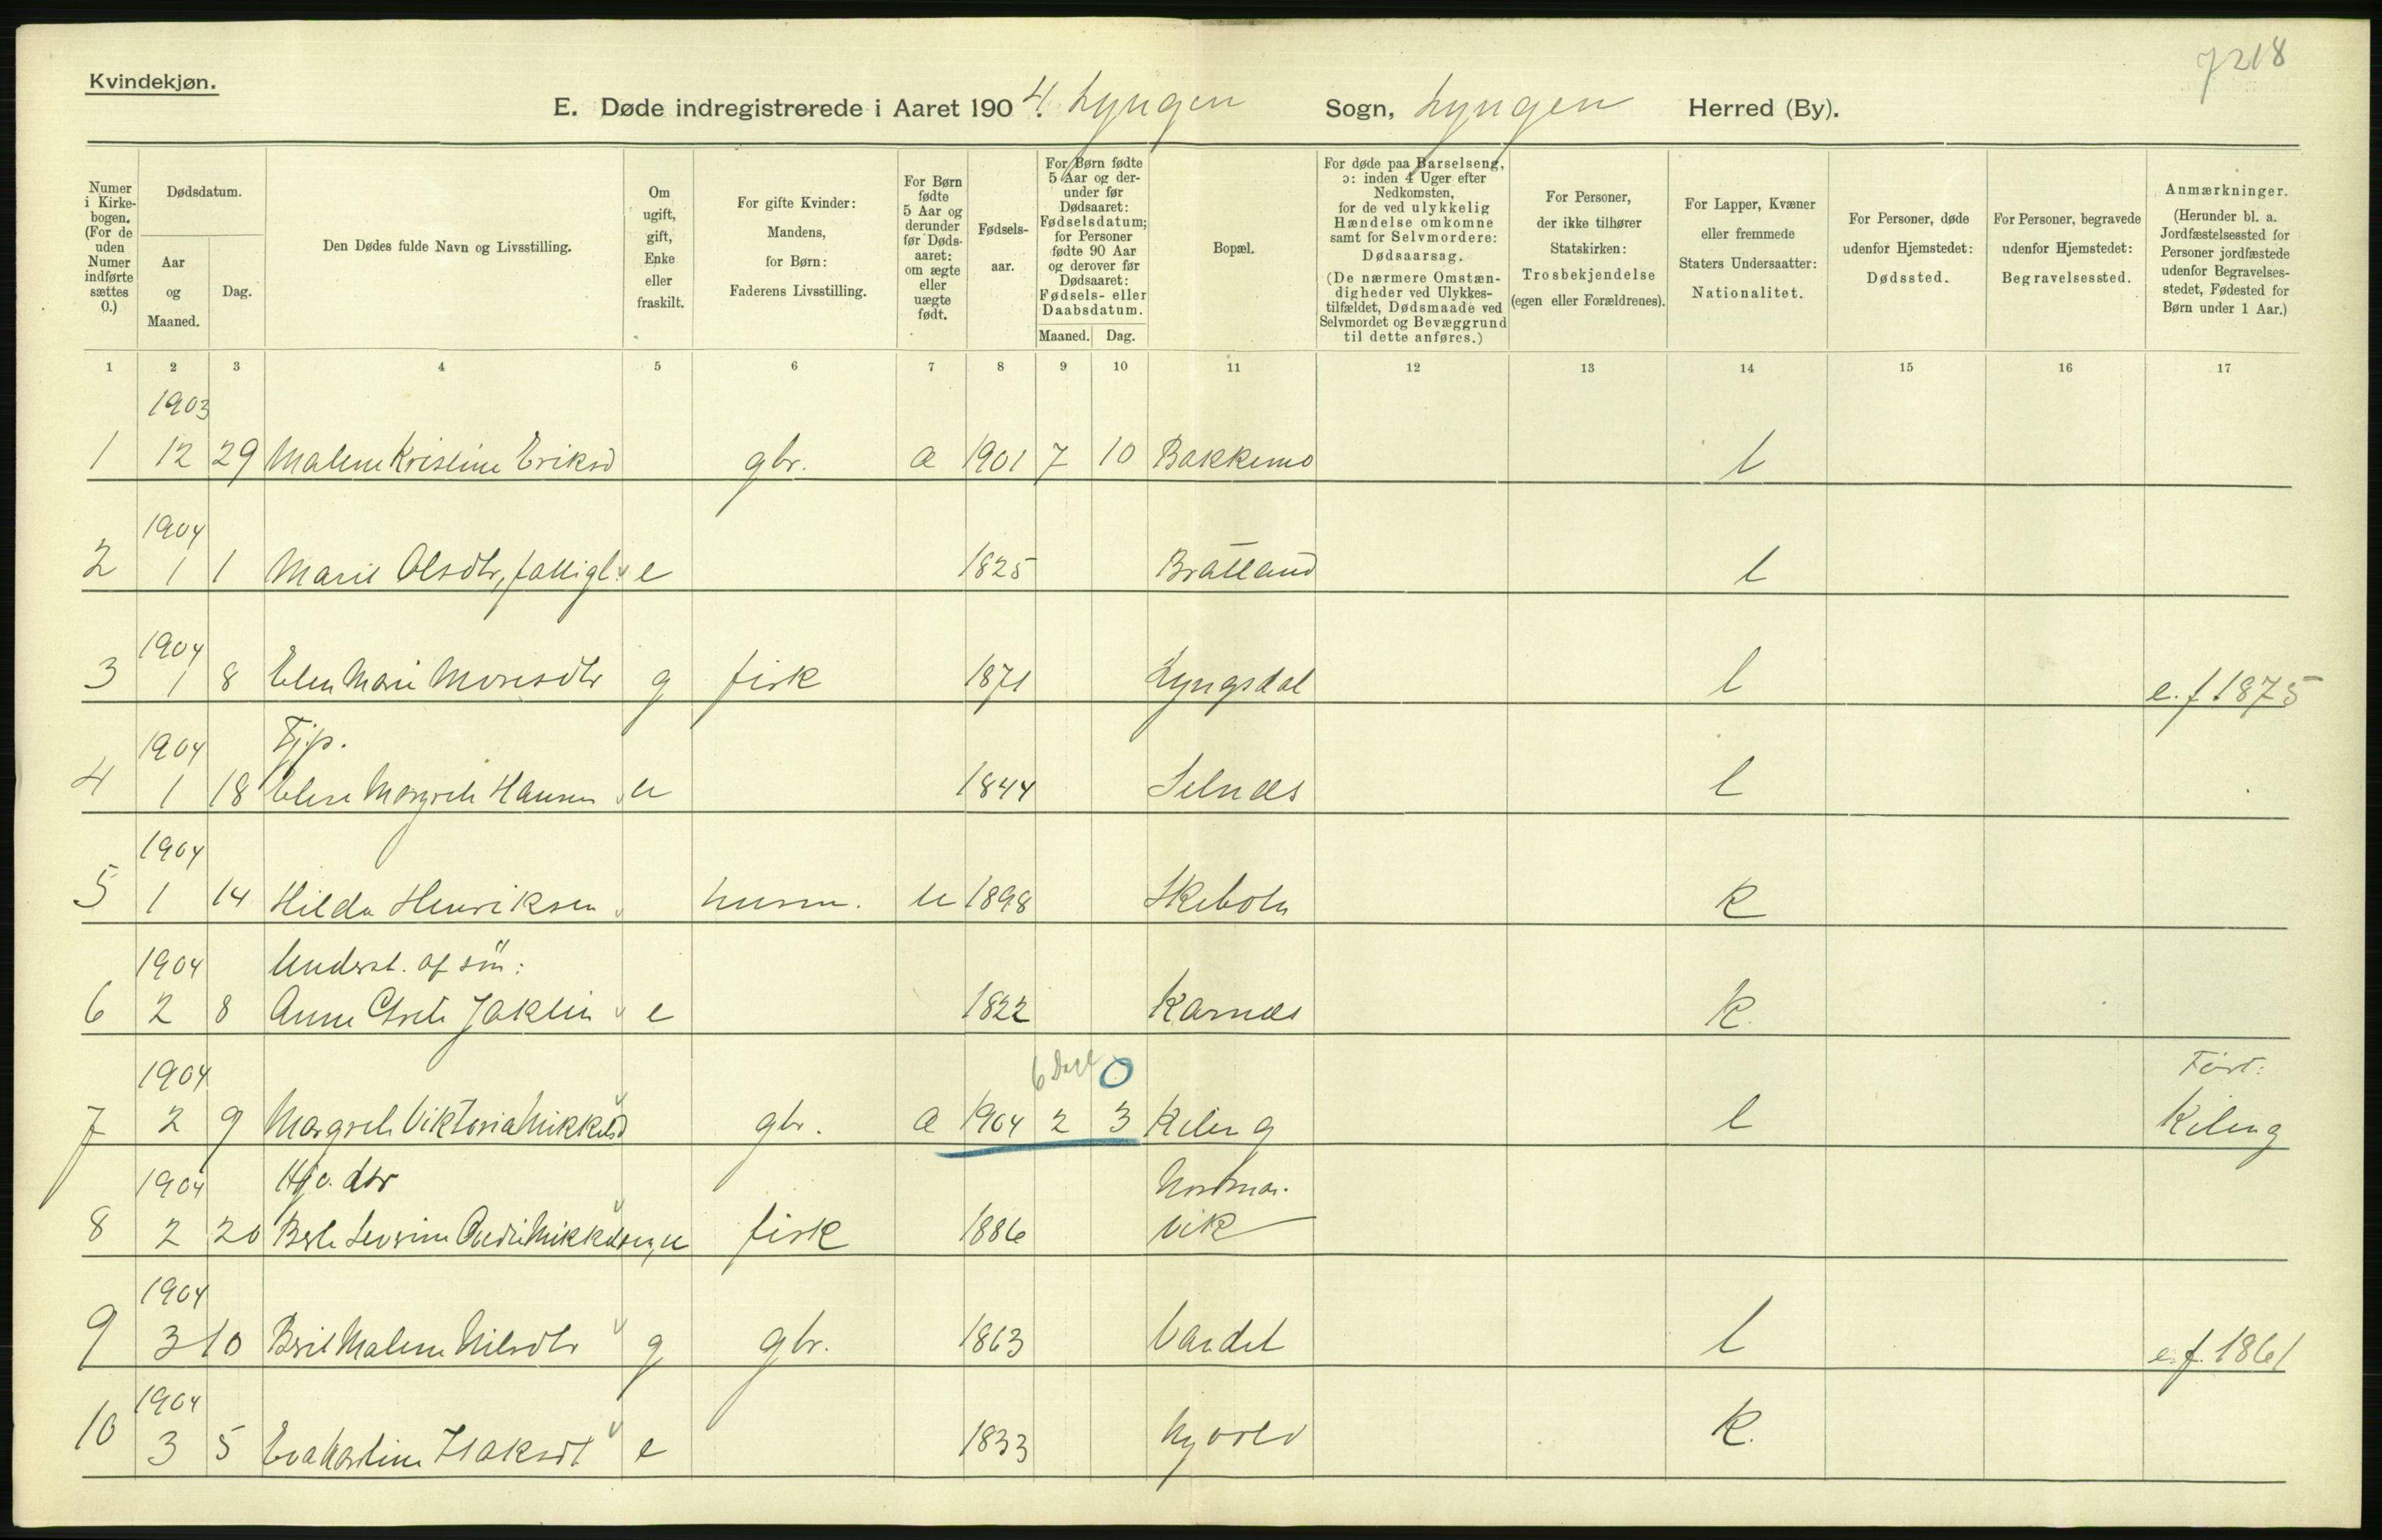 7218
Kvindekjøn.
E. Døde indregistrerede i Aaret 1904. Lyngen Sogn, Lyngen Herred (By).
Numer i Kirkebogen. (For de uden Numer indførte sættes 0.)
Dødsdatum.
Aar og Maaned.
Dag.
Den Dødes fulde Navn og Livsstilling.
Om ugift, gift, Enke eller fraskilt.
For gifte Kvinder: Mandens, for Børn: Faderens Livsstilling.
For Børn fødte 5 Aar og derunder før Dødsaaret: om ægte eller uægte født.
Fødselsaar.
For Børn fødte 5 Aar og derunder før Dødsaaret: Fødselsdatum; for Personer fødte 90 Aar og derover før Dødsaaret: Fødsels- eller Daabsdatum.
Maaned. Dag.
Bopæl.
For døde paa Barselseng, ɔ: inden 4 Uger efter Nedkomsten, for de ved ulykkelig Hændelse omkomne samt for Selvmordere: Dødsaarsag. (De nærmere Omstændigheder ved Ulykkestilfældet, Dødsmaade ved Selvmordet og Bevæggrund til dette anføres.)
For Personer, der ikke tilhører Statskirken: Trosbekjendelse (egen eller Forældrenes).
For Lapper, Kvæner eller fremmede Staters Undersaatter: Nationalitet.
For Personer, døde udenfor Hjemstedet: Dødssted.
For Personer, begravede udenfor Hjemstedet: Begravelsessted.
Anmærkninger. (Herunder bl. a. Jordfæstelsessted for Personer jordfæstede udenfor Begravelsesstedet, Fødested for Børn under 1 Aar.)
1 2 3 4 5 6 7 8 9 10 11 12 13 14 15 16 17
1903
1 12 29 Malene Kristine Eriksd gbr. a 1901 7 10 Bakkemo l
1904
2 1 1 Marit Olsdtr, fattigl. e 1825 Bratland l
1904
3 1 8 Elen Marie Monsdtr g fisk 1871 Lyngsdal l e. f. 1875
1904 Tjp.
4 1 18 Elen Margrete Hansen u 1844 Selnæs l
1904
5 1 14 Hilda Henriksen husm. u 1898 Skibotn k
1904 Underst. af søn:
6 2 8 Anne Grete Jaklin e 1822 Karnæs k.
1904 6 Dage 0 Født:
7 2 9 Margrete Viktoria Mikkelsd gbr. a 1904 2 3 Kileng l Kileng
1904 dtr
8 2 20 Mikkelsen, u fisk 1886 vik
1904
9 3 10 Berit Malene Nilsdtr g gbr. 1863 l e. f. 1861
1904
10 3 5 Eva Isaksdt e 1833 k.